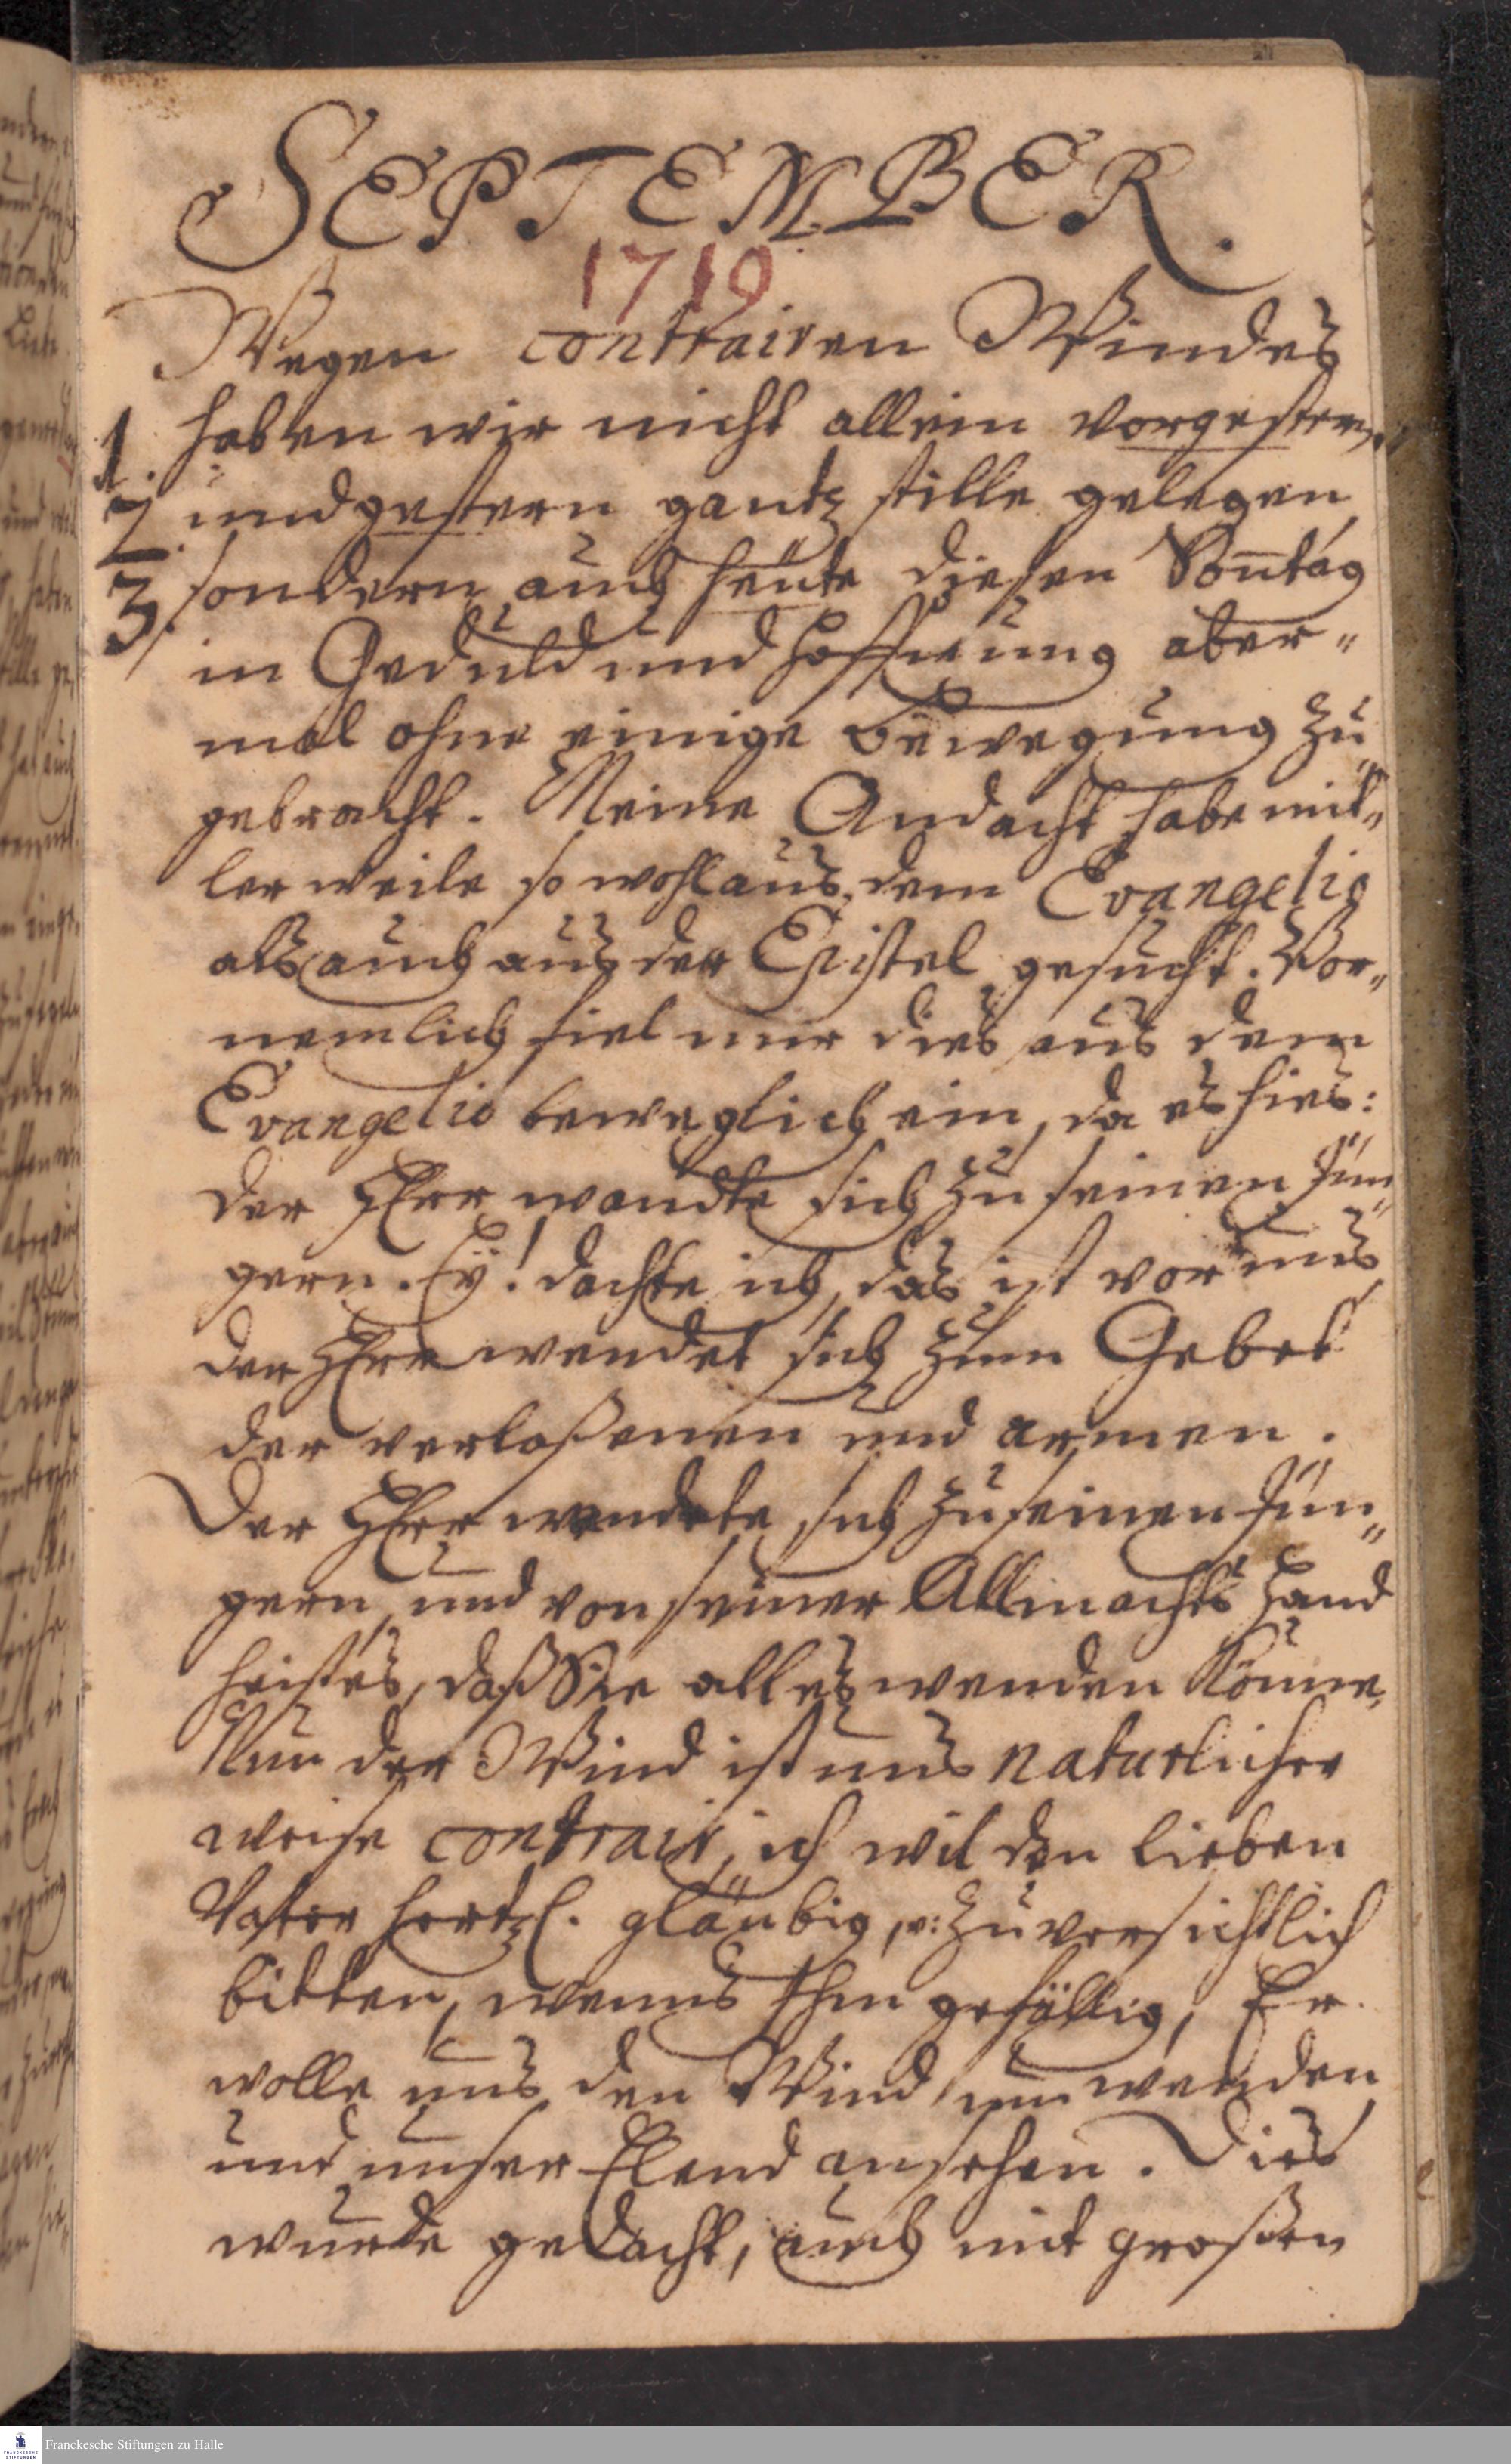 SEPTEMBER.
1719
Wegen contrairen Windes
1. haben wir nicht allein vorgestern,
2. und gestern gantz stille gelegen
3. sondern auch heute diesen Son̄tag
in Gedult und Hoffnung aber„
mal ohne einige bewegung zu„
gebracht. Meine Andacht habe mit„
ler weile so wohl aus dem Evangelio
als auch aus der Epistel gesucht. Vor„
nemlich fiel mir dies aus dem
Evangelio beweglich ein, da es hies:
der HErr wandte sich zu seinen Jün„
gern. Ey! dachte ich, das ist vor uns
der HErr wendet sich zum Gebet
der verlaßenen und armen.
Der HErr wendete sich zu seinen Jün„
gern, und von seiner Allmachts Hand
heist es, daß Sie alles wenden könne,
Nun der Wind ist uns naturlicher
weise contrair, ich wil den lieben
Vater hertzl. gläubig, u: zuversichtlich
bitten, wenns Ihm gefällig, Er
wolle uns den Wind um wenden
und unser Elend ansehen. Dies
wurde gedacht, auch mit großen
Franckesche Stiftungen zu Halle